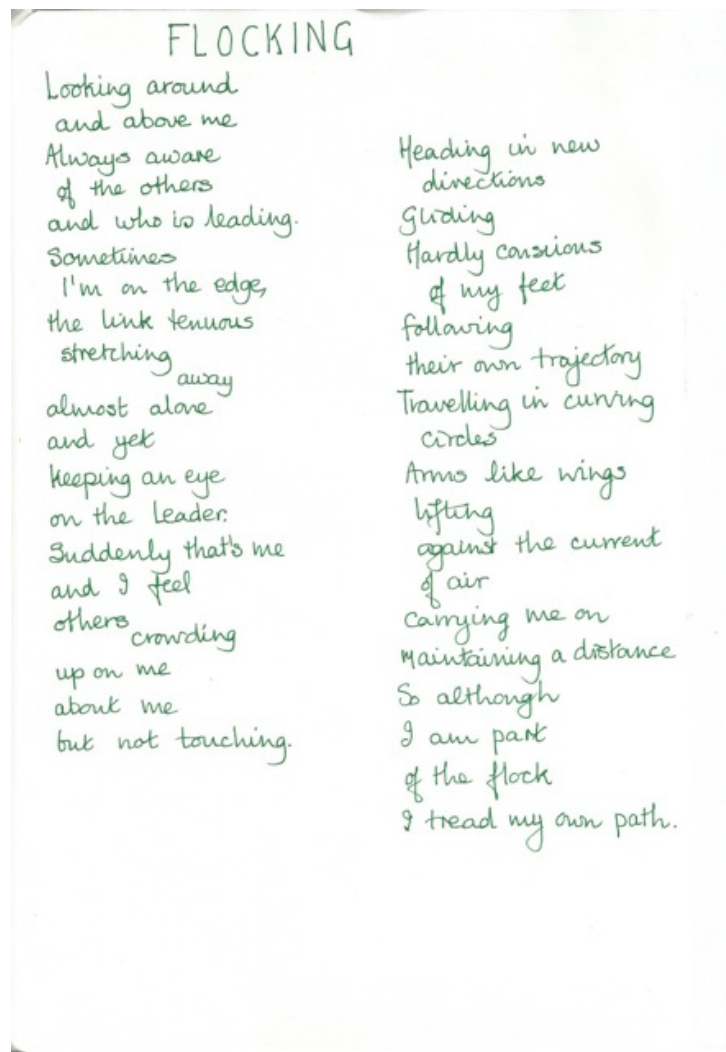 FLOCKING
Looking around
and above me
Always aware
of the others
and who is leading.
Sometimes
I'm on the edge,
the link tenuous
stretching
away
almost alone
and yet
Keeping an eye
on the leader.
Suddenly that's me
and I feel
others
crowding
up on me
about me
but not touching.
Heading in new
directions
Gliding
Hardly conscious
of my feet
following
their own trajectory
Travelling in curving
circles
Arms like wings
lifting
against the current
of air
Carrying me on
Maintaining a distance
So although
I am part
of the flock
I tread my own path.